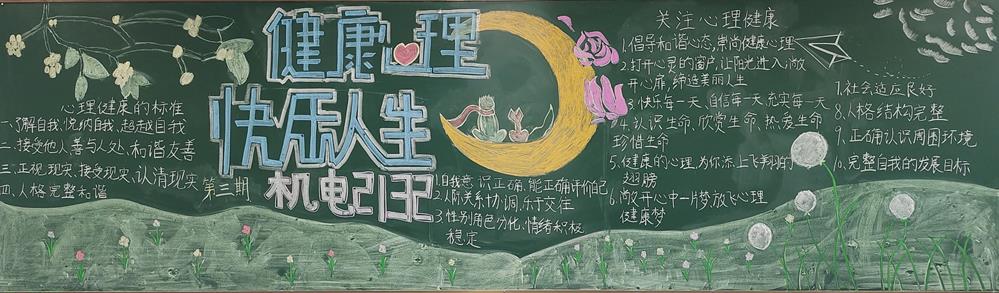 健康心理
快乐人生
第三期
机电2132
心理健康的标准
一.了解自我、悦纳自我、超越自我
二.接受他人善与人处、和谐友善
三.正视现实、接受现实、认清现实
四.人格完整和谐
1自我意识正确,能正确评价自己
2.人际关系协调,乐于交往
3.性别角色分化、情绪积极
稳定
关注心理健康
1.倡导和谐心态,崇尚健康心理
2.打开心灵的窗户,让阳光进入;敞
开心扉,缔造美丽人生
3.快乐每一天、自信每一天、充实每一天
4.认识生命、欣赏生命、热爱生命
珍惜生命
5.健康的心理,为你添上飞翔的
翅膀
6.敞开心中一片梦放飞心理
健康梦
7.社会适应良好
8.人格结构完整
9.正确认识周围环境
10.完整自我的发展目标